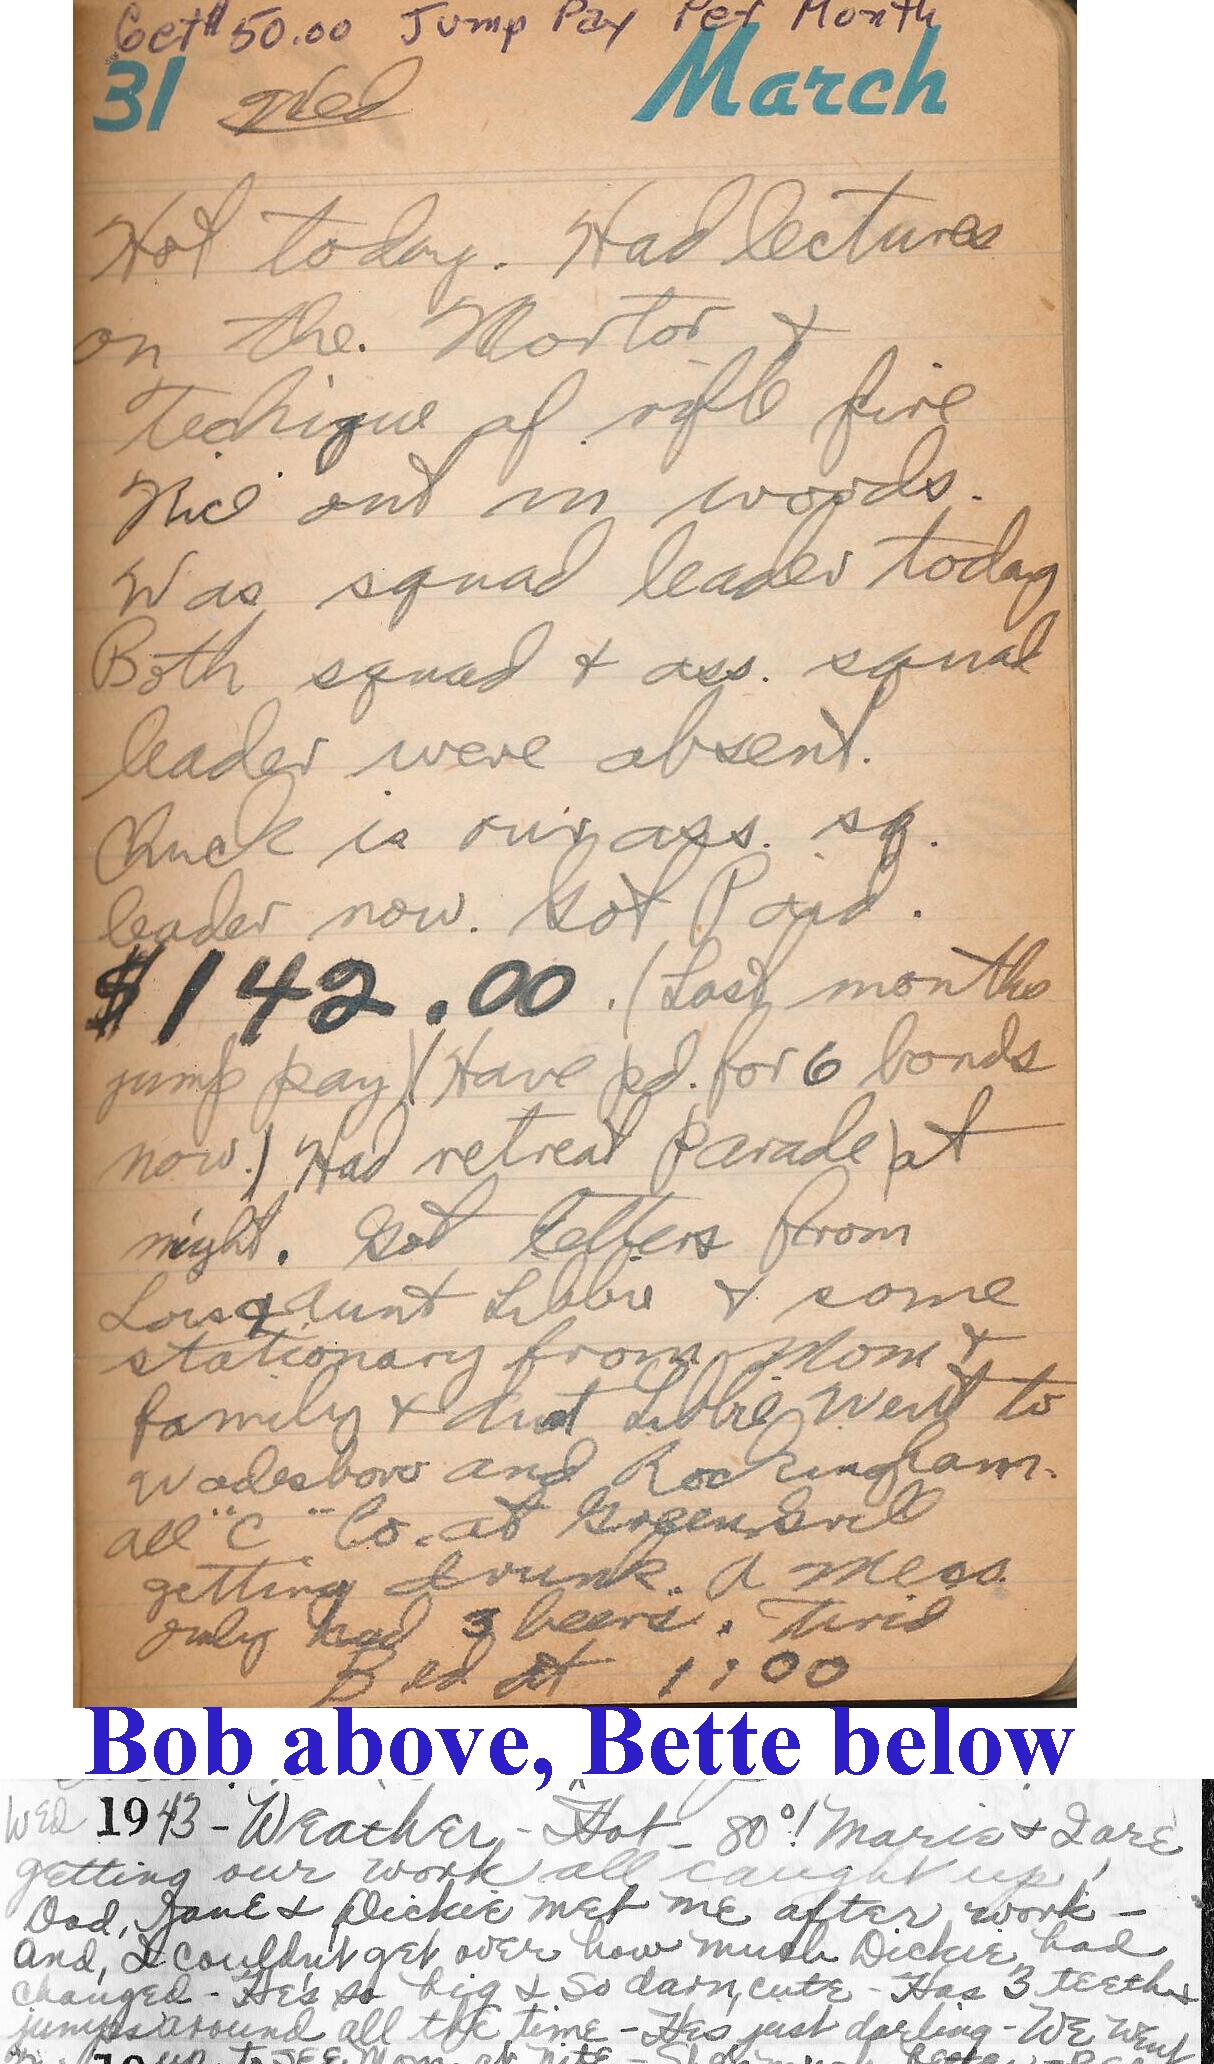 Get $50.00 Jump Pay Per Month
31 Wed March
Hot today. Had lectures
on the. Mortor &
Techique of rifle fire
Nice out in woods.
Was squad leader today
Both squad & ass. squad
leader were absent.
Chuck is our ass. sq.
leader now. Got Paid.
$142.00. (Last months
jump pay) (Have pd. for 6 bonds
now.) Had retreat parade at
night. Got letters from
Lois & Aunt Libbie & some
stationary from Mom &
family & Aunt Libbie Went to
Wadesboro and Rockingham.
all "C" Co. at Green Grill
getting drunk. A mess.
only had 3 beers. Tirid
Bed at 1:00
Bob above, Bette below
WED 1943 - Weather - Hot - 80°! Marie & I are
getting our work all caught up!
Dad, Jane & Dickie met me after work -
And, I couldn't get over how much Dickie had
changed - He's so big & so darn cute - Has 3 teeth &
jumps around all the time - He's just darling - We went
up to see Mom at nite -